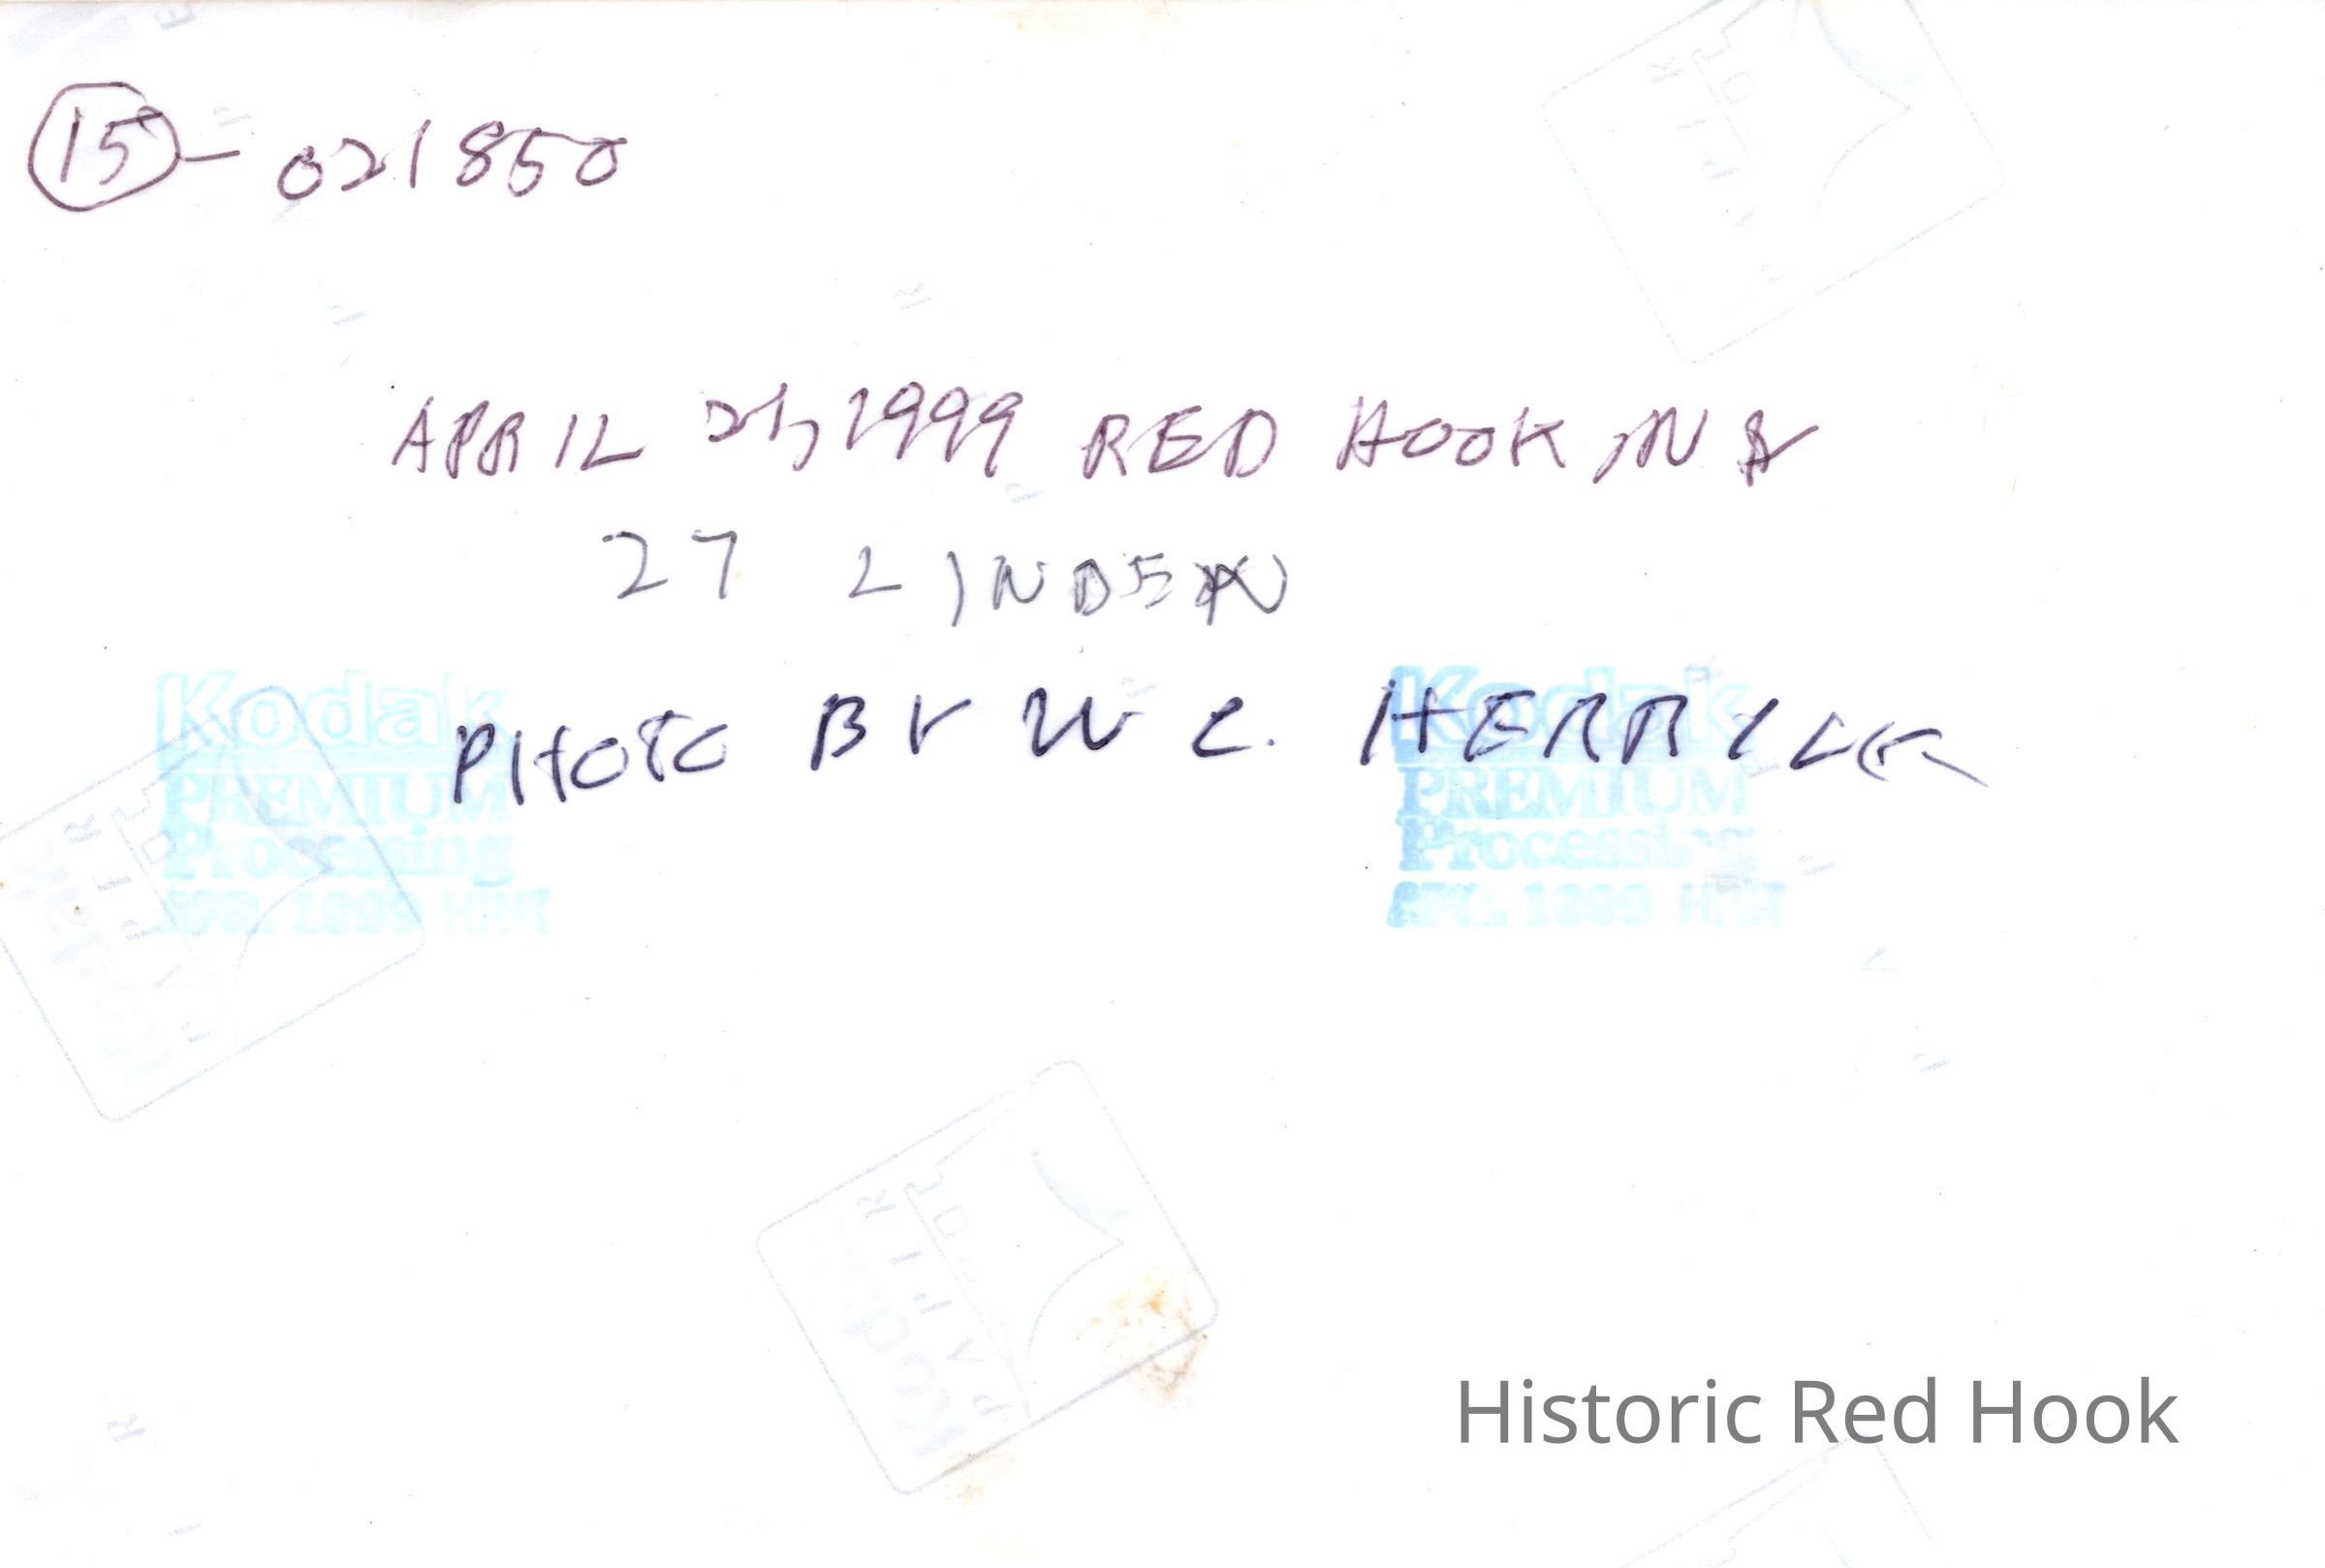 15 - 021850
APRIL 1999 RED HOOK NY
27 LINDEN
PHOTO BY W C. HERRICK
Kodak
PREMIUM
Processing
APR. 1999 HRK
Kodak
PREMIUM
Processing
1999
Kodak
PAPIER
Historic Red Hook